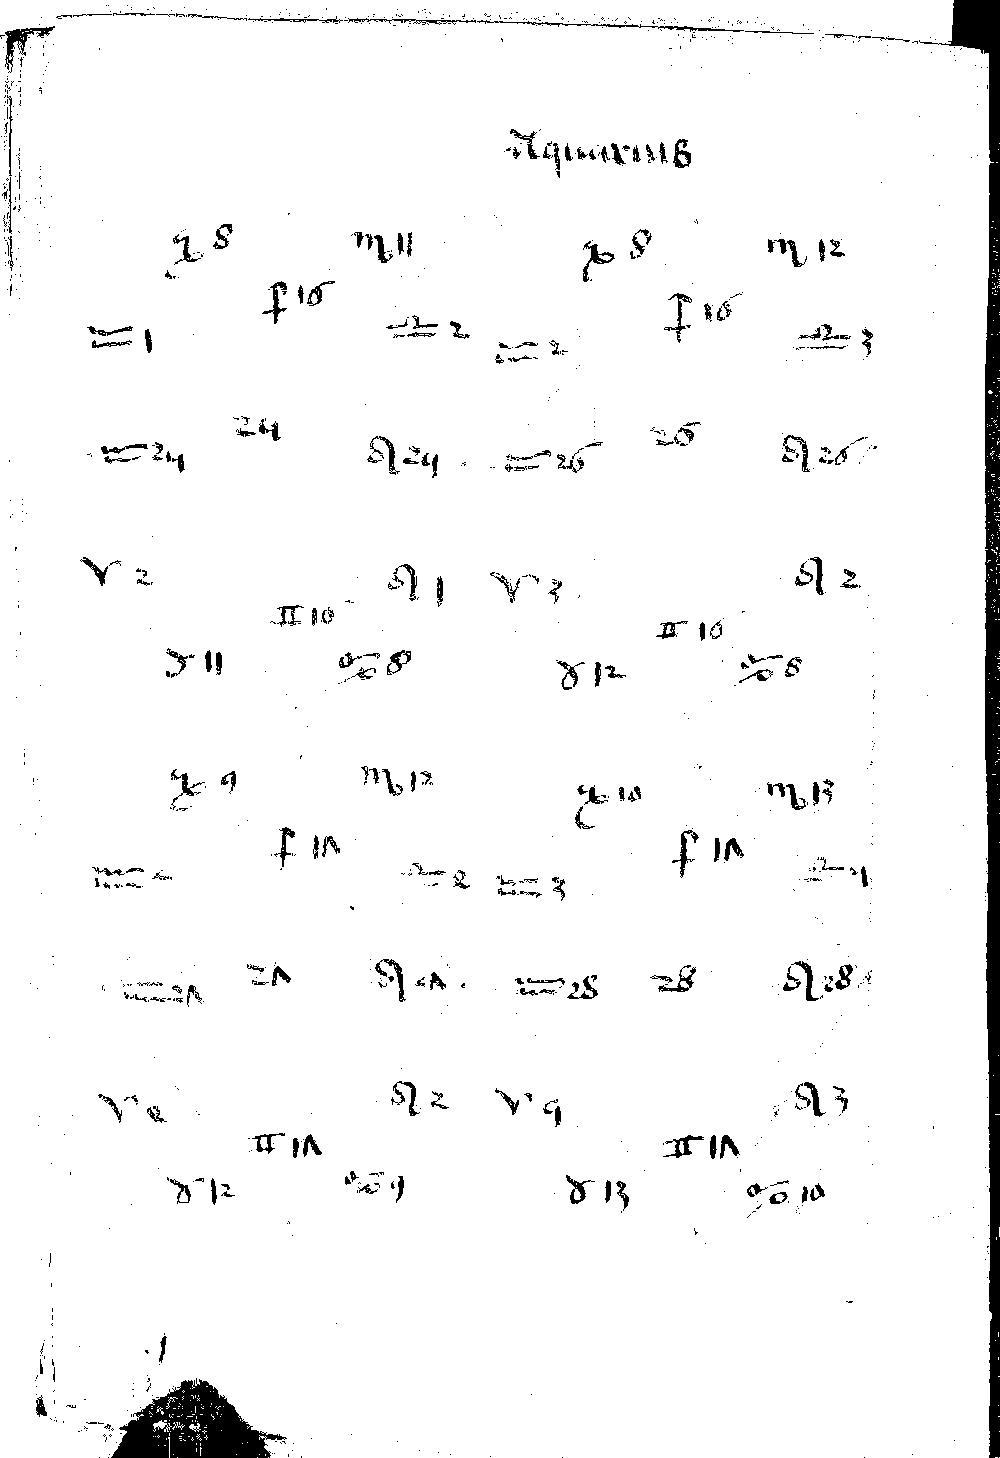 Aquarius
♑ 8 ♏ 11 ♑ 8 ♏ 12
♐ 16 ♐ 16
♒ 1 ♎ 2 ♒ 2 ♎ 3
24 26
♒ 24 ♌ 24 ♒ 26 ♌ 26
♈ 2 ♌ 1 ♈ 3 ♌ 2
♊ 10 ♊ 16
♉ 11 ♋ 8 ♉ 12 ♋ 8
♑ 9 ♏ 12 ♑ 10 ♏ 13
♐ 1Λ ♐ 1Λ
♒ ♎ 2 ♒ 3 ♎
2Λ 28
♒ 2Λ ♌ 2Λ ♒ 28 ♌ 28
♈ 2 ♌ 2 ♈ ♌ 3
♊ 1Λ ♊ 1Λ
♉ 12 ♋ 9 ♉ 13 ♋ 10